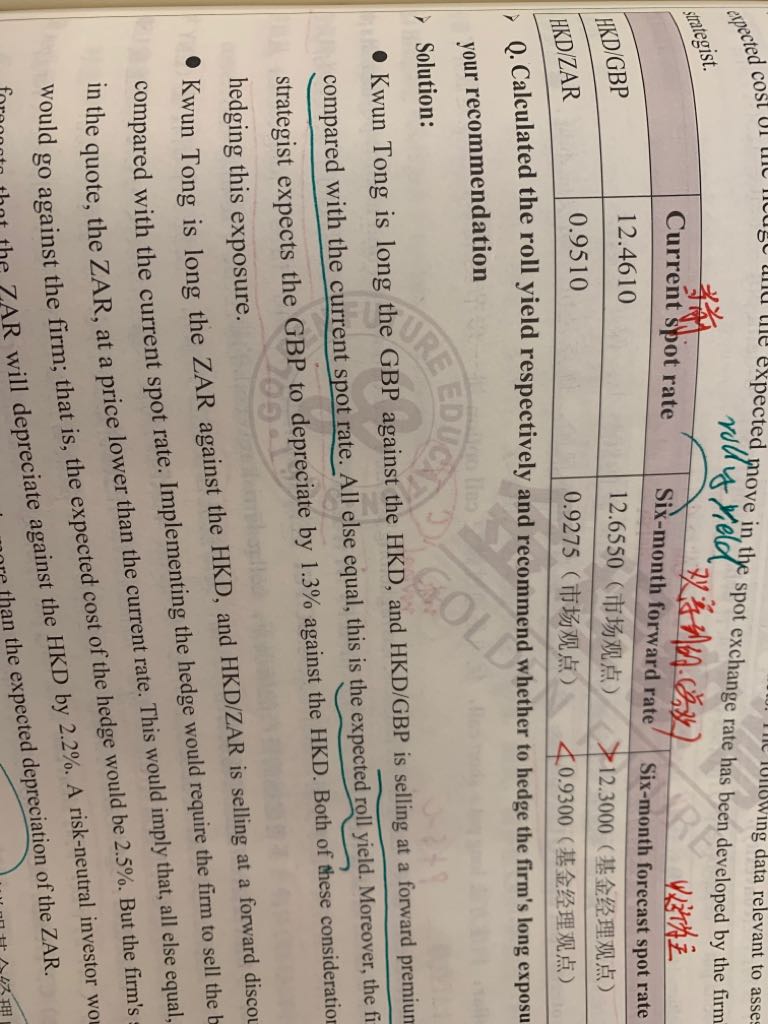 expected cost of the hedge and the expected move in the spot exchange rate has been developed by the firm
strategist.
rolly yield
Current spot rate
Six-month forward rate
Six-month forecast spot rate
以这个为主
HKD/GBP
12.4610
12.6550（市场观点）
>
12.3000（基金经理观点）
HKD/ZAR
0.9510
0.9275（市场观点）
<
0.9300（基金经理观点）
➢ Q. Calculated the roll yield respectively and recommend whether to hedge the firm's long exposu
your recommendation
➢ Solution:
● Kwun Tong is long the GBP against the HKD, and HKD/GBP is selling at a forward premium
compared with the current spot rate. All else equal, this is the expected roll yield. Moreover, the fi
strategist expects the GBP to depreciate by 1.3% against the HKD. Both of these consideration
hedging this exposure.
● Kwun Tong is long the ZAR against the HKD, and HKD/ZAR is selling at a forward discou
compared with the current spot rate. Implementing the hedge would require the firm to sell the b
in the quote, the ZAR, at a price lower than the current rate. This would imply that, all else equal,
would go against the firm; that is, the expected cost of the hedge would be 2.5%. But the firm's s
forecasts that the ZAR will depreciate against the HKD by 2.2%. A risk-neutral investor wou
more than the expected depreciation of the ZAR.
GOLDEN FUTURE